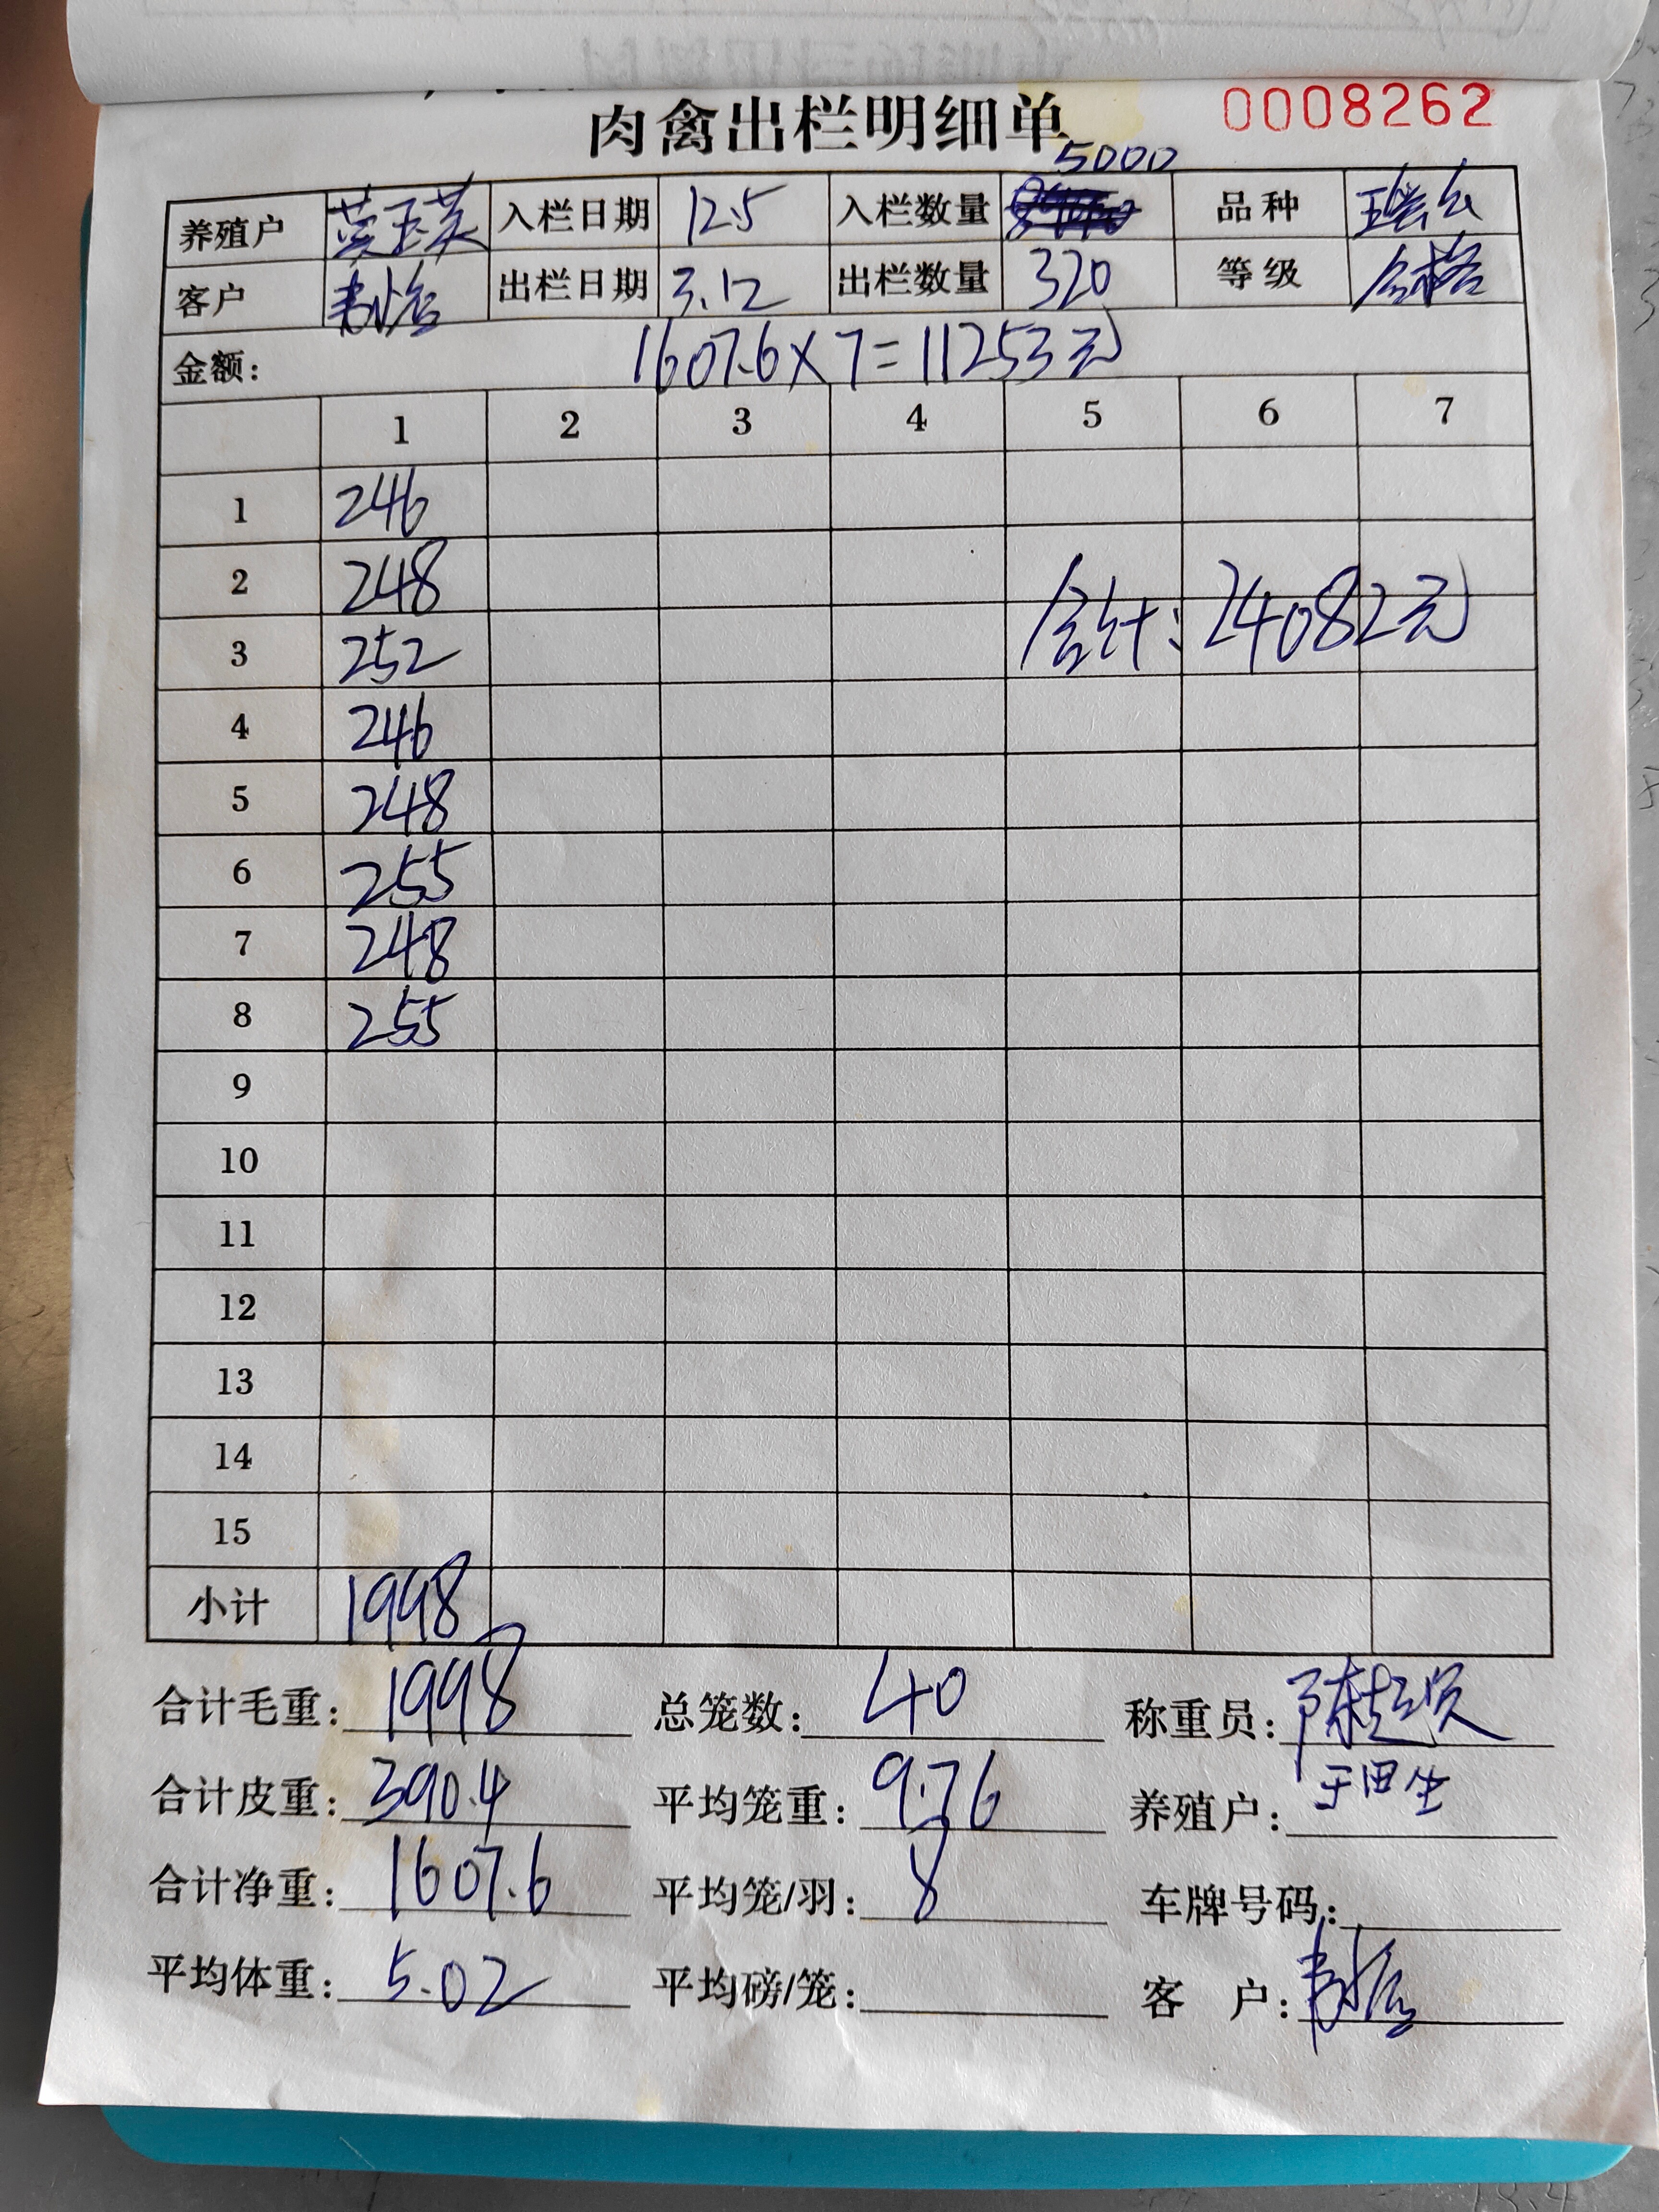 肉禽出栏明细单 0008262
5000
养殖户 黄玉英 入栏日期 12.5 入栏数量 品种
客户 出栏日期 3.12 出栏数量 320 等级 合格
金额: 1607.6×7=11253元
1 2 3 4 5 6 7
1 246
2 248
3 252 合计: 24082元
4 246
5 248
6 255
7 248
8 255
9
10
11
12
13
14
15
小计 1998
合计毛重: 1998 总笼数: 40 称重员:
合计皮重: 390.4 平均笼重: 9.76 养殖户:
合计净重: 1607.6 平均笼/羽: 8 车牌号码:
平均体重: 5.02 平均磅/笼: 客 户: